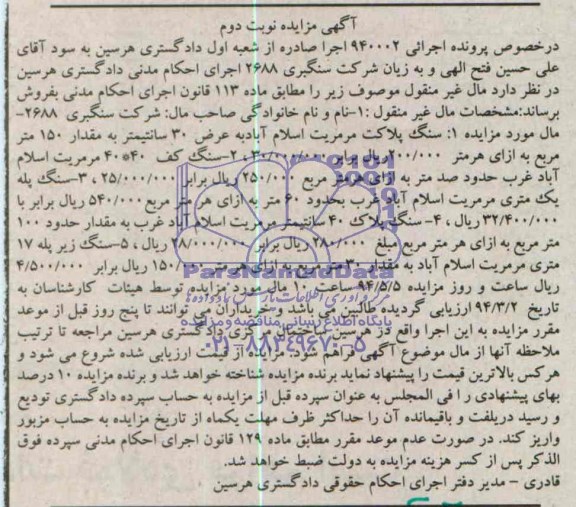 آگهی مزایده نوبت دوم
درخصوص پرونده اجرائی ۹۴۰۰۰۲ اجرا صادره از شعبه اول دادگستری هرسین به سود آقای
علی حسین فتح الهی و به زیان شرکت سنگبری ۲۶۸۸ اجرای احکام مدنی دادگستری هرسین
در نظر دارد مال غیر منقول موصوف زیر را مطابق ماده ۱۱۳ قانون اجرای احکام مدنی بفروش
برساند:مشخصات مال غیر منقول :۱-نام و نام خانوادگی صاحب مال: شرکت سنگبری ۲۶۸۸-
مال مورد مزایده ۱: سنگ پلاکت مرمریت اسلام آبادبه عرض ۳۰ سانتیمتر به مقدار ۱۵۰ متر
مربع به ازای هرمتر ۲۰۰/۰۰۰ ریال برابر ۳۰/۰۰۰/۰۰۰ ، ۲-سنگ کف ۴۰*۴۰ مرمریت اسلام
آباد غرب حدود صد متر به ازای هرمتر مربع ۲۵۰/۰۰۰ ریال برابر ۲۵/۰۰۰/۰۰۰ ، ۳-سنگ پله
یک متری مرمریت اسلام آباد غرب بحدود ۶۰ متر به ازای هر متر مربع ۵۴۰/۰۰۰ ریال برابر با
۳۲/۴۰۰/۰۰۰ ریال ، ۴- سنگ پلاک ۴۰ سانتیمتر مرمریت اسلام آباد غرب به مقدار حدود ۱۰۰
متر مربع به ازای هر متر مربع مبلغ ۲۸۰/۰۰۰ ریال برابر ۲۸/۰۰۰/۰۰۰ ریال ، ۵-سنگ زیر پله ۱۷
متری مرمریت اسلام آباد به مقدار ۳۰ متر مربع به ازای هر متر ۱۵۰/۰۰۰ ریال برابر ۴/۵۰۰/۰۰۰
ریال ساعت و روز مزایده ۹۴/۵/۵ ساعت ۱۰ مال مورد مزایده توسط هیئات کارشناسان به
تاریخ ۹۴/۳/۲ ارزیابی گردیده طالبین می باشد و خریداران می توانند تا پنج روز قبل از موعد
مقرر مزایده به این اجرا واقع در هرسین ساختمان مرکزی دادگستری هرسین مراجعه تا ترتیب
ملاحظه آنها از مال موضوع آگهی فراهم شود: مزایده از قیمت ارزیابی شده شروع می شود و
هرکس بالاترین قیمت را پیشنهاد نماید برنده مزایده شناخته خواهد شد و برنده مزایده ۱۰ درصد
بهای پیشنهادی را فی المجلس به عنوان سپرده قبل از مزایده به حساب سپرده دادگستری تودیع
و رسید دریافت و باقیمانده آن را حداکثر ظرف مهلت یکماه از تاریخ مزایده به حساب مزبور
واریز کند. در صورت عدم موعد مقرر مطابق ماده ۱۲۹ قانون اجرای احکام مدنی سپرده فوق
الذکر پس از کسر هزینه مزایده به دولت ضبط خواهد شد.
قادری - مدیر دفتر اجرای احکام حقوقی دادگستری هرسین
ParsNamadData
مرکز فرآوری اطلاعات پارس نماد داده‌ها
پایگاه اطلاع رسانی مناقصه و مزایده
۰۲۱-۸۸۳۴۹۶۷۰-۵